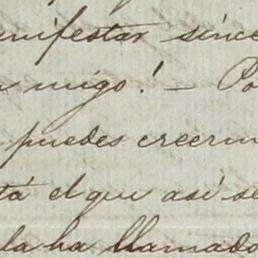 nifestar since
migo! – Po
puedes creerm
tá el que así se
la ha llamado